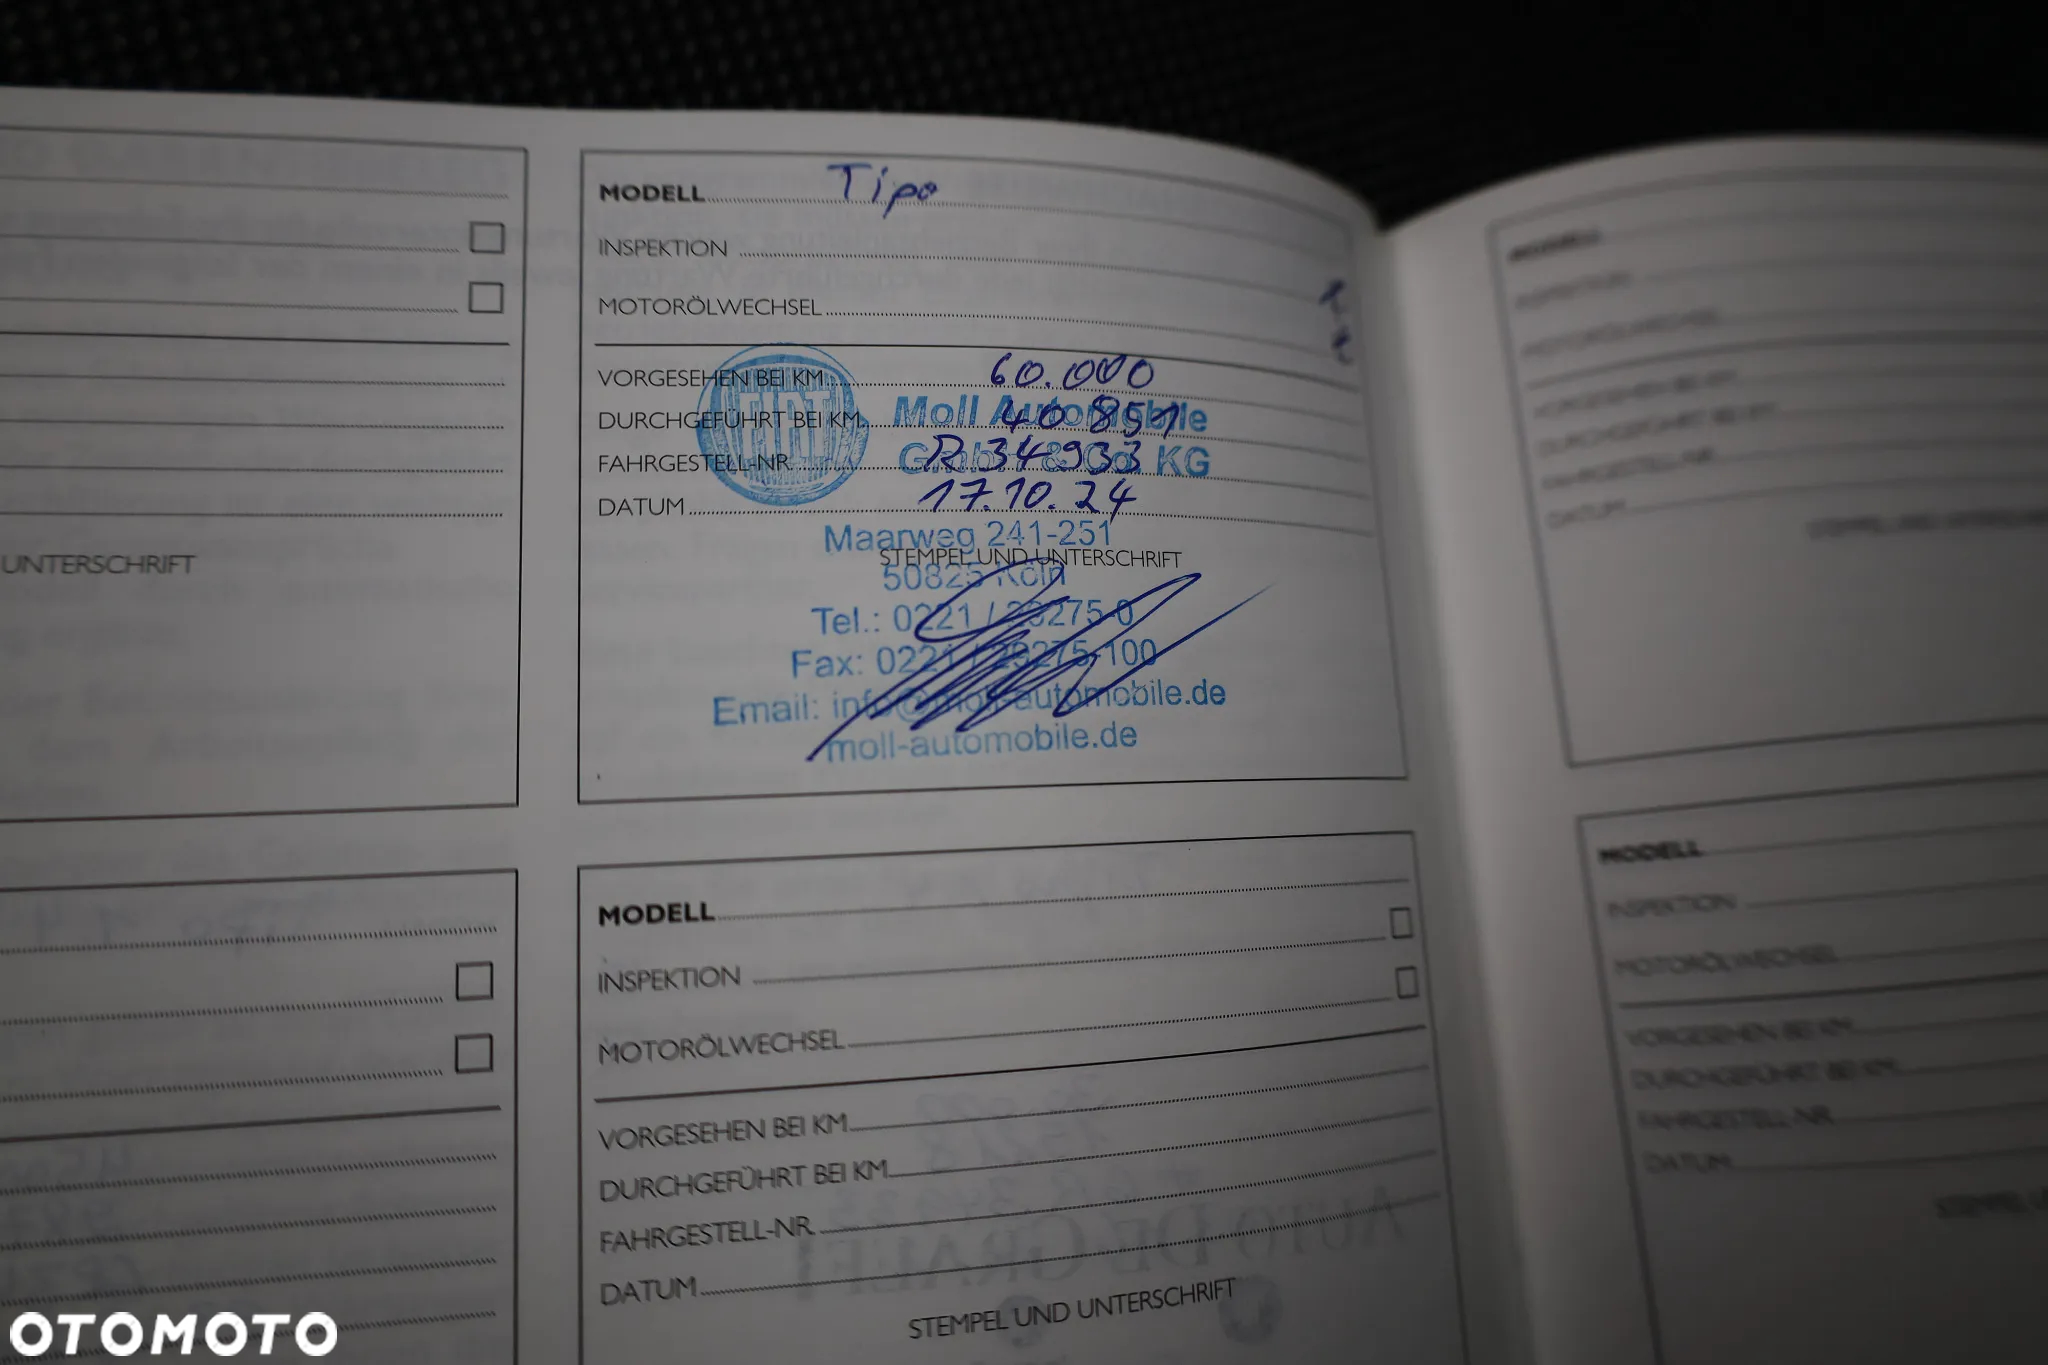 MODELL Tipo
INSPEKTION
MOTORÖLWECHSEL
VORGESEHEN BEI KM 60.000
DURCHGEFÜHRT BEI KM 40 851
FAHRGESTELL-NR. R 34933
DATUM 17.10.24
STEMPEL UND UNTERSCHRIFT
FIAT
Moll Automobile
GmbH & Co. KG
Maarweg 241-251
50825 Köln
Tel.: 0221 / 29275-0
Fax: 0221 / 29275-100
Email: info@moll-automobile.de
moll-automobile.de
UNTERSCHRIFT
MODELL
INSPEKTION
MOTORÖLWECHSEL
VORGESEHEN BEI KM
DURCHGEFÜHRT BEI KM
FAHRGESTELL-NR.
DATUM
STEMPEL UND UNTERSCHRIFT
MODELL
INSPEKTION
MOTORÖLWECHSEL
VORGESEHEN BEI KM
DURCHGEFÜHRT BEI KM
FAHRGESTELL-NR.
DATUM
STEMPEL UND UNTERSCHRIFT
MODELL
INSPEKTION
MOTORÖLWECHSEL
VORGESEHEN BEI KM
DURCHGEFÜHRT BEI KM
FAHRGESTELL-NR
DATUM
OTOMOTO